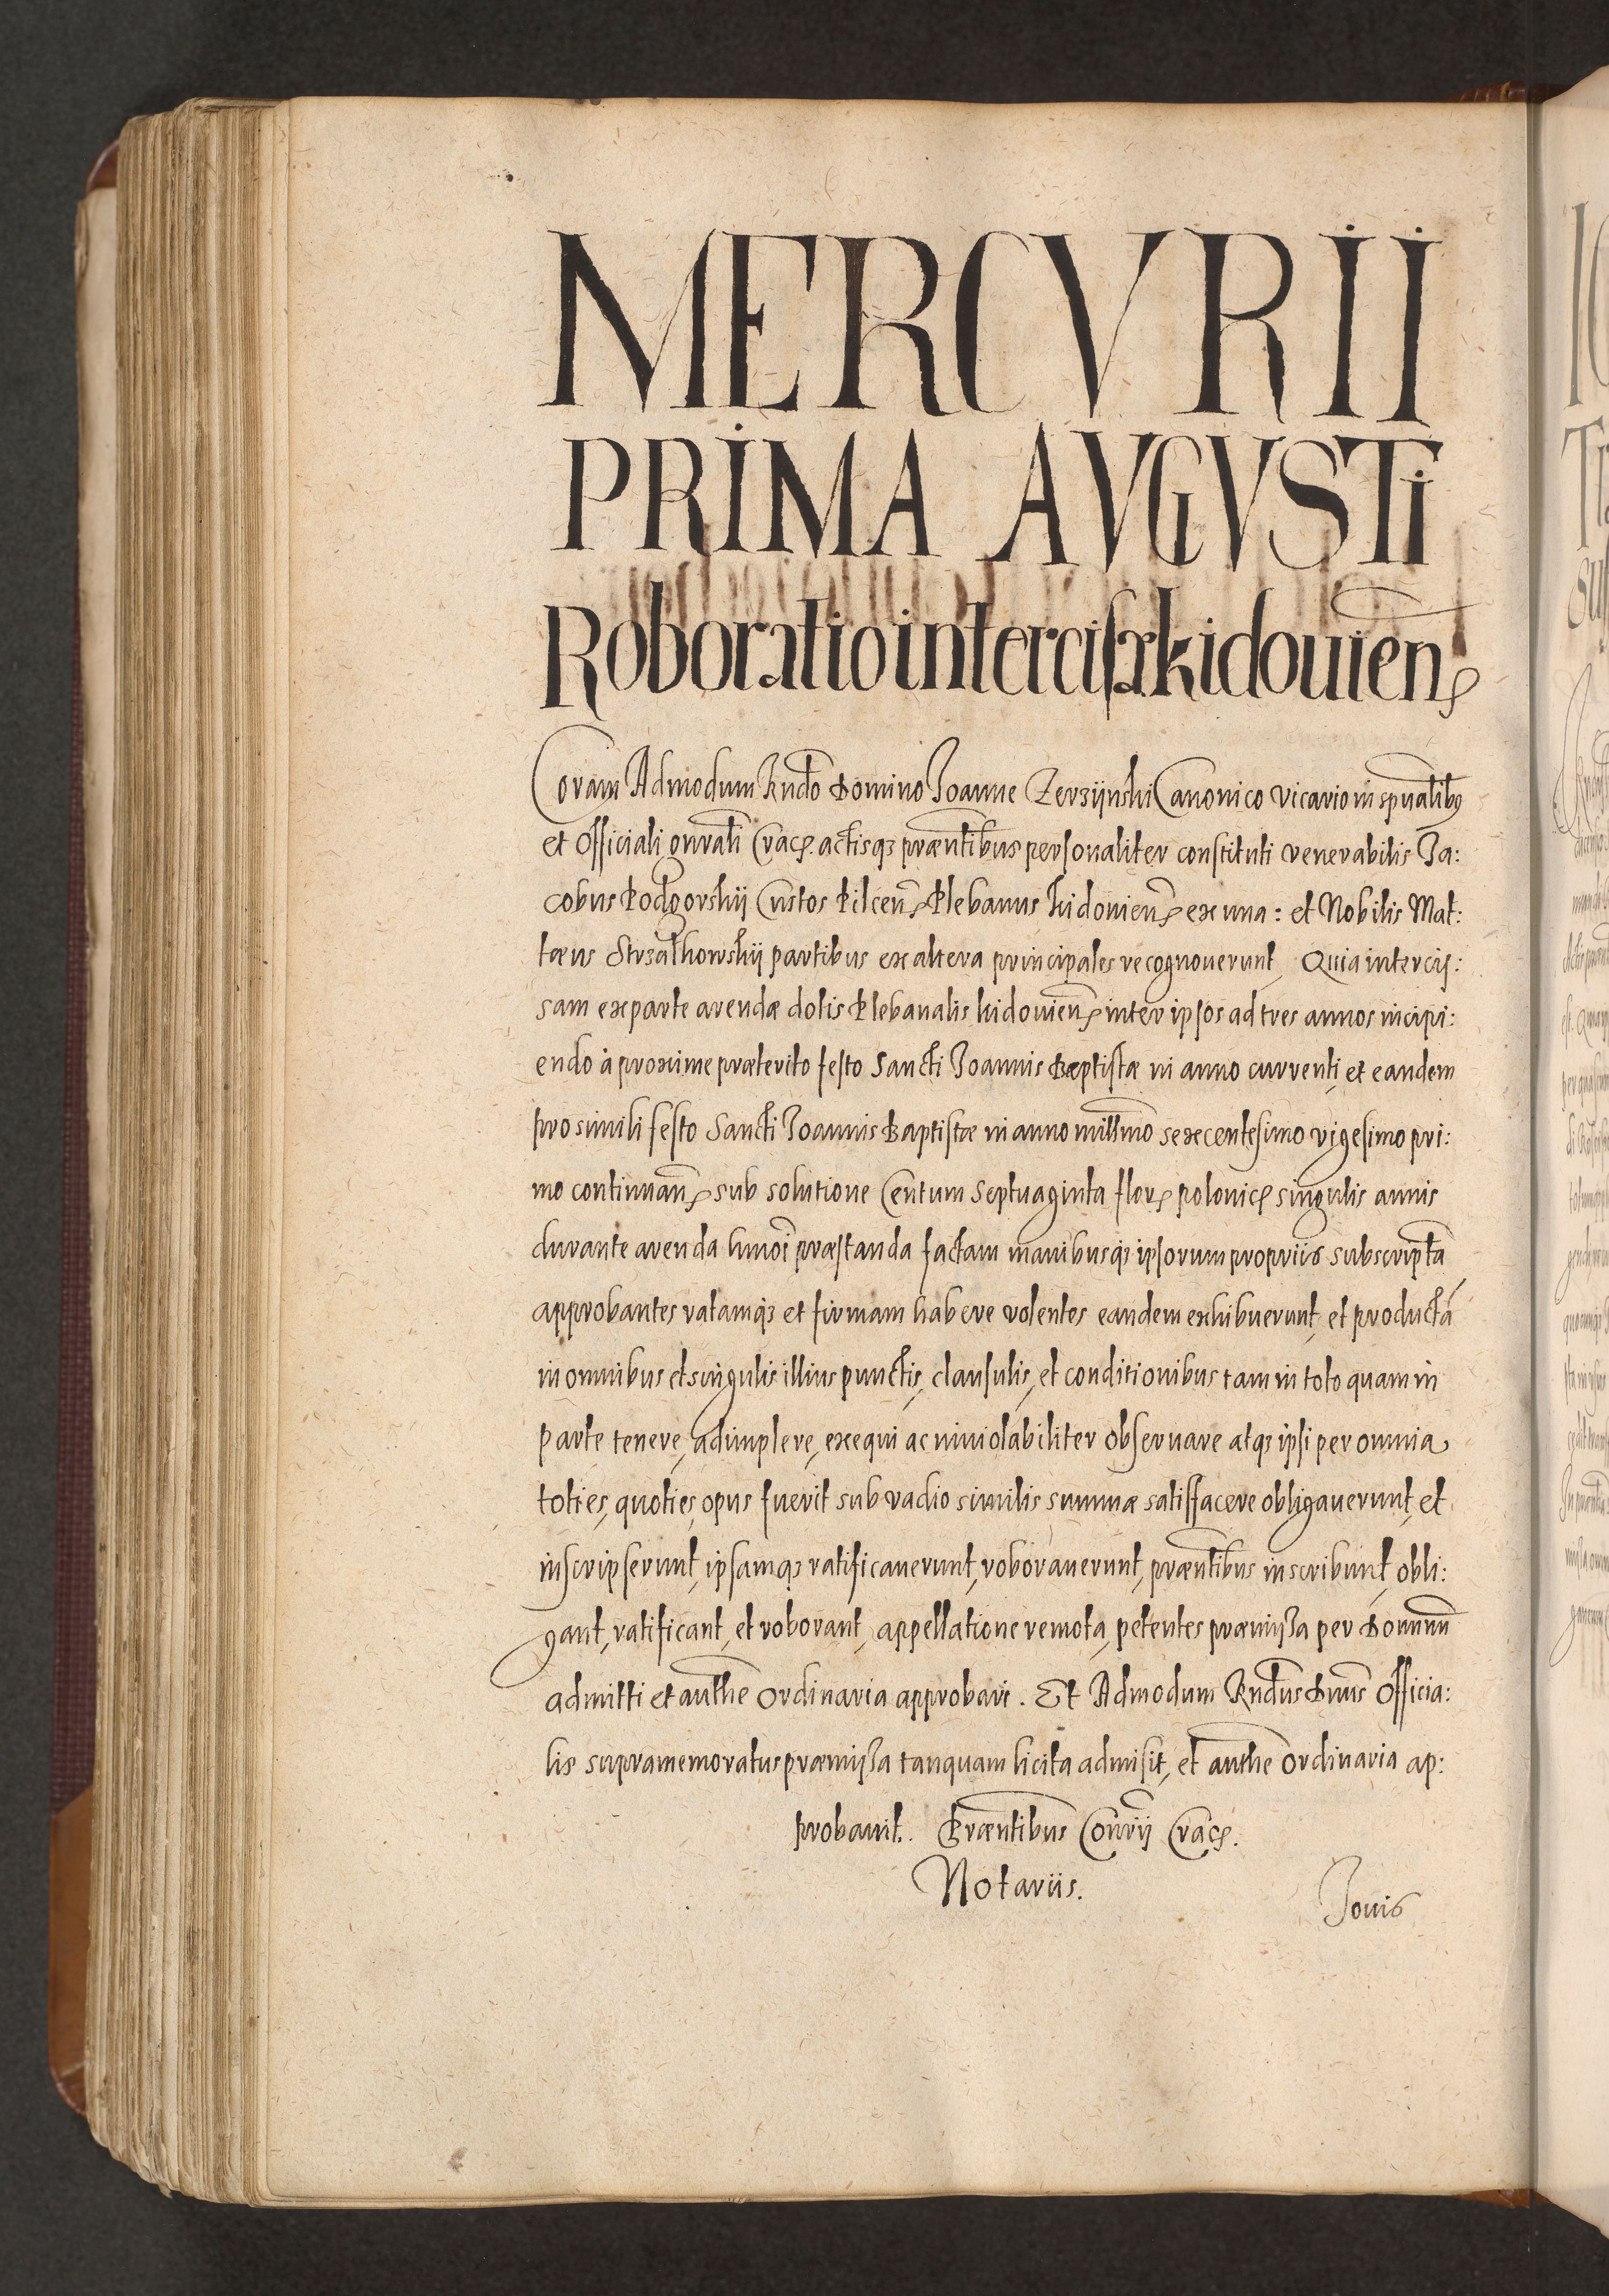 MERCVRII
PRIMA AVGVSTi
Roboratio intercisæ kidouien̄
Coram Admodum Rndo Domino Joanne Zerzijnski Canonico Vicario in spũalibꝰ
et Officiali gnrali Crac̄. actisqꝫ præntibus personaliter constituti venerabilis Ja:
cobus Podgorskij Custos Pilcen̄ Plebanus kidouien̄ ex una: et Nobilis Mat:
tæus Strzałkowskij partibus ex altera principales recognouerunt, Quia intercis:
sam ex parte arendæ dotis Plebanalis kidouien̄ inter ipsos ad tres annos incipi:
endo à proxime præterito festo Sancti Joannis Baptistæ in anno currenti, et eandem
pro simili festo Sancti Joannis Baptistæ in anno millmo sexcentesimo vigesimo pri:
mo continuan̄ sub solutione Centum Septuaginta flor̄ polonic̄ singulis annis
durante arenda hmoi præstanda factam manibusqꝫ ipsorum propriis subscriptã
approbantes ratamqꝫ et firmam habere volentes eandem exhibuerunt, et productã
in omnibus et singulis illius punctis, clausulis, et conditionibus tam in toto quam in
parte tenere, adimplere, exequi ac inuiolabiliter obseruare atqꝫ ipsi per omnia
toties, quoties, opus fuerit sub vadio similis summæ satisfacere obligauerunt, et
inscripserunt, ipsamqꝫ ratificauerunt, roborauerunt, præntibus inscribunt, obli:
gant, ratificant, et roborant, appellatione remota, petentes præmissa per Domnũ
admitti et authe ordinaria approbari. Et Admodum Rndus Dnus Officia:
lis supramemoratus præmissa tanquam licita admisit, et authe ordinaria ap:
probauit. Præntibus Conrij Crac̄.
Notariis.
Jouis